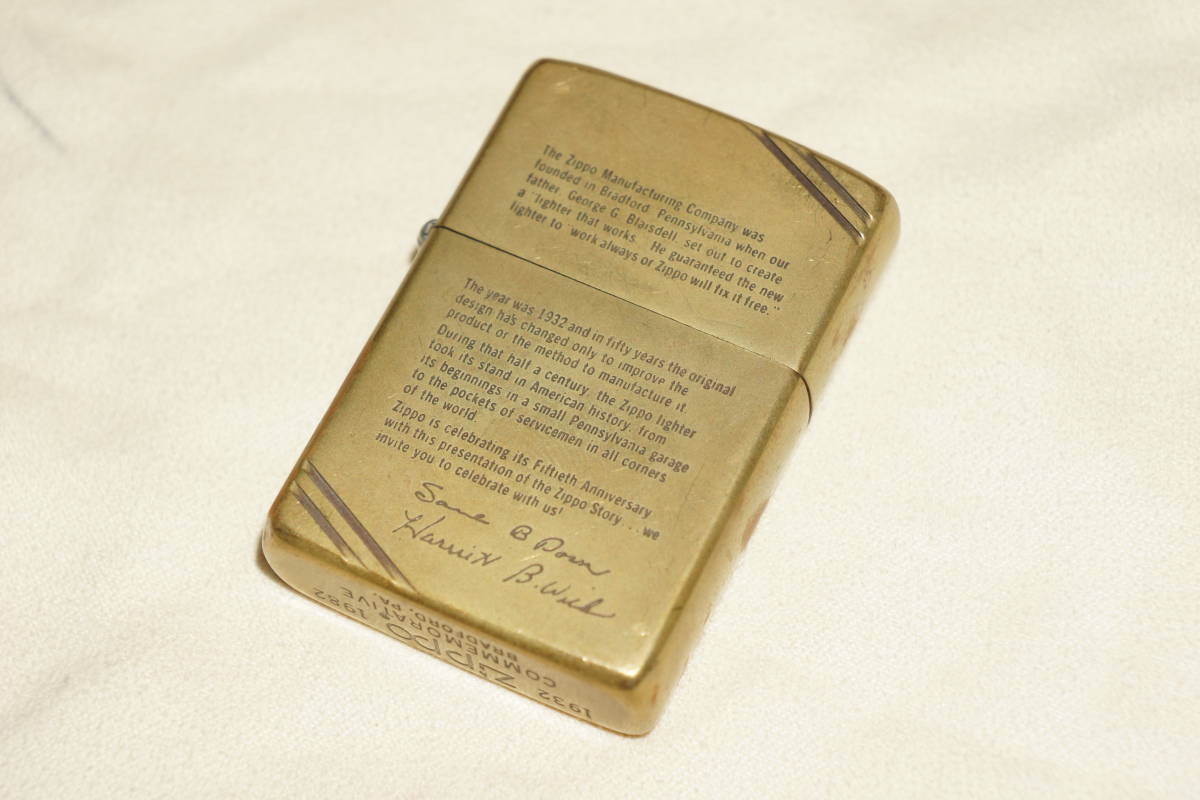 The Zippo Manufacturing Company was
founded in Bradford, Pennsylvania when our
father, George G. Blaisdell, set out to create
a "lighter that works." He guaranteed the new
lighter to "work always or Zippo will fix it free."
The year was 1932 and in fifty years the original
design has changed only to improve the
product or the method to manufacture it.
During that half a century, the Zippo lighter
took its stand in American history, from
its beginnings in a small Pennsylvania garage
to the pockets of servicemen in all corners
of the world.
Zippo is celebrating its Fiftieth Anniversary
with this presentation of the Zippo Story . . . we
invite you to celebrate with us!
B
Harriett B. Wick
1932 Zippo 1982
COMMEMORATIVE
BRADFORD, PA.